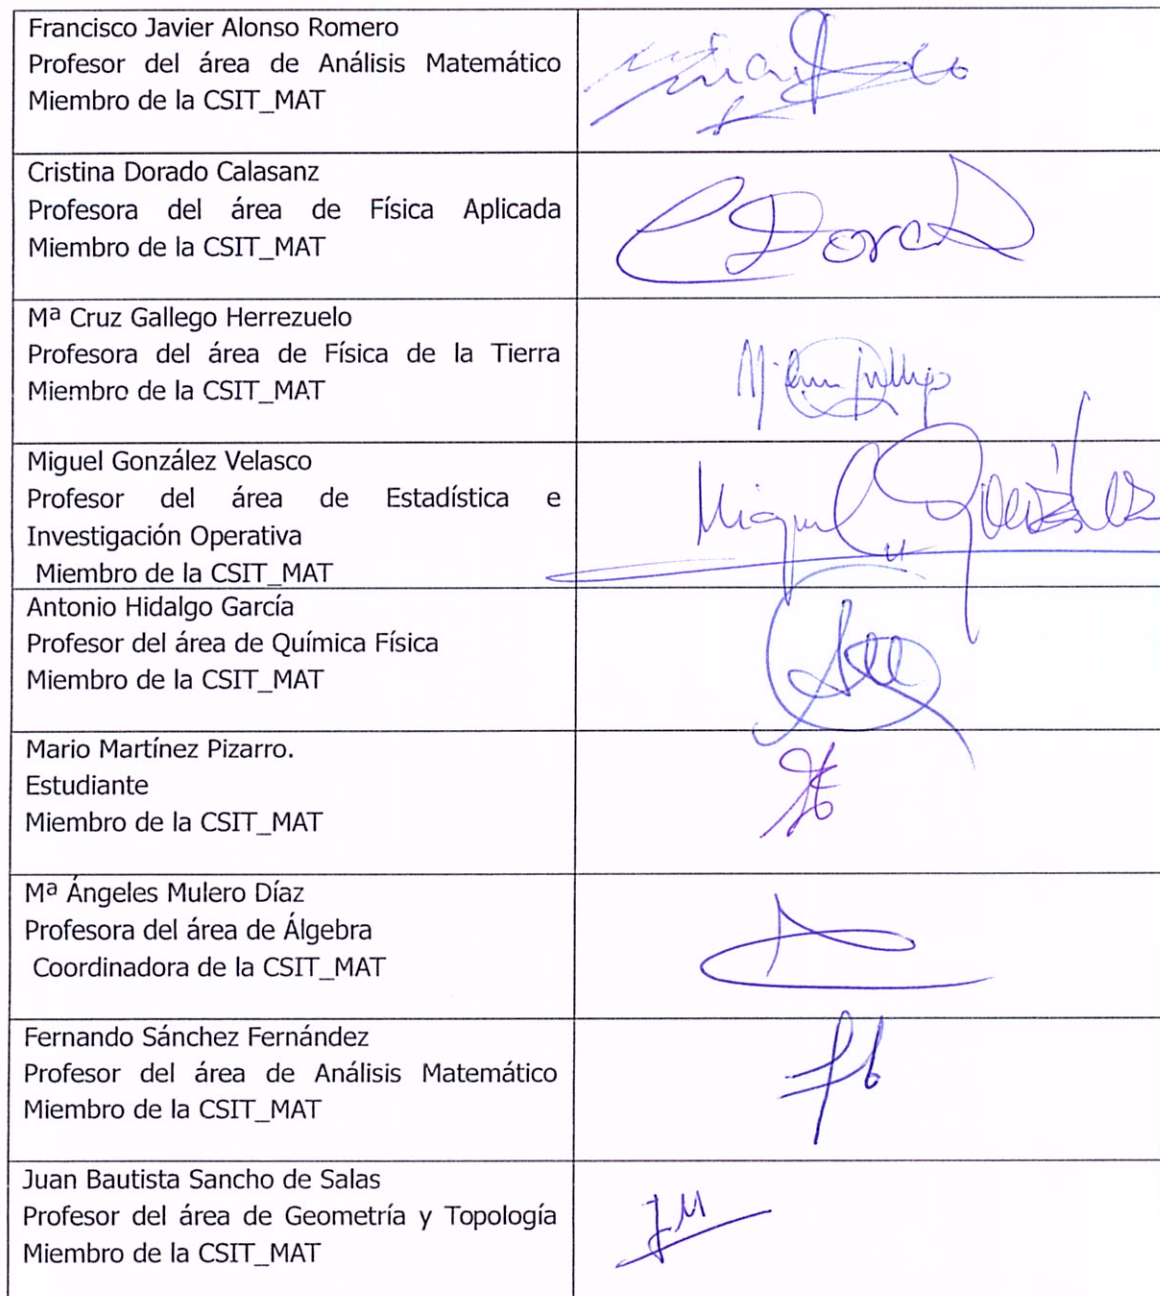 Francisco Javier Alonso Romero
Profesor del área de Análisis Matemático
Miembro de la CSIT_MAT
Cristina Dorado Calasanz
Profesora del área de Física Aplicada
Miembro de la CSIT_MAT
C Dorad
Mª Cruz Gallego Herrezuelo
Profesora del área de Física de la Tierra
Miembro de la CSIT_MAT
Miguel González Velasco
Profesor del área de Estadística e
Investigación Operativa
Miembro de la CSIT_MAT
Miguel González
Antonio Hidalgo García
Profesor del área de Química Física
Miembro de la CSIT_MAT
Mario Martínez Pizarro.
Estudiante
Miembro de la CSIT_MAT
Mª Ángeles Mulero Díaz
Profesora del área de Álgebra
Coordinadora de la CSIT_MAT
Fernando Sánchez Fernández
Profesor del área de Análisis Matemático
Miembro de la CSIT_MAT
Juan Bautista Sancho de Salas
Profesor del área de Geometría y Topología
Miembro de la CSIT_MAT